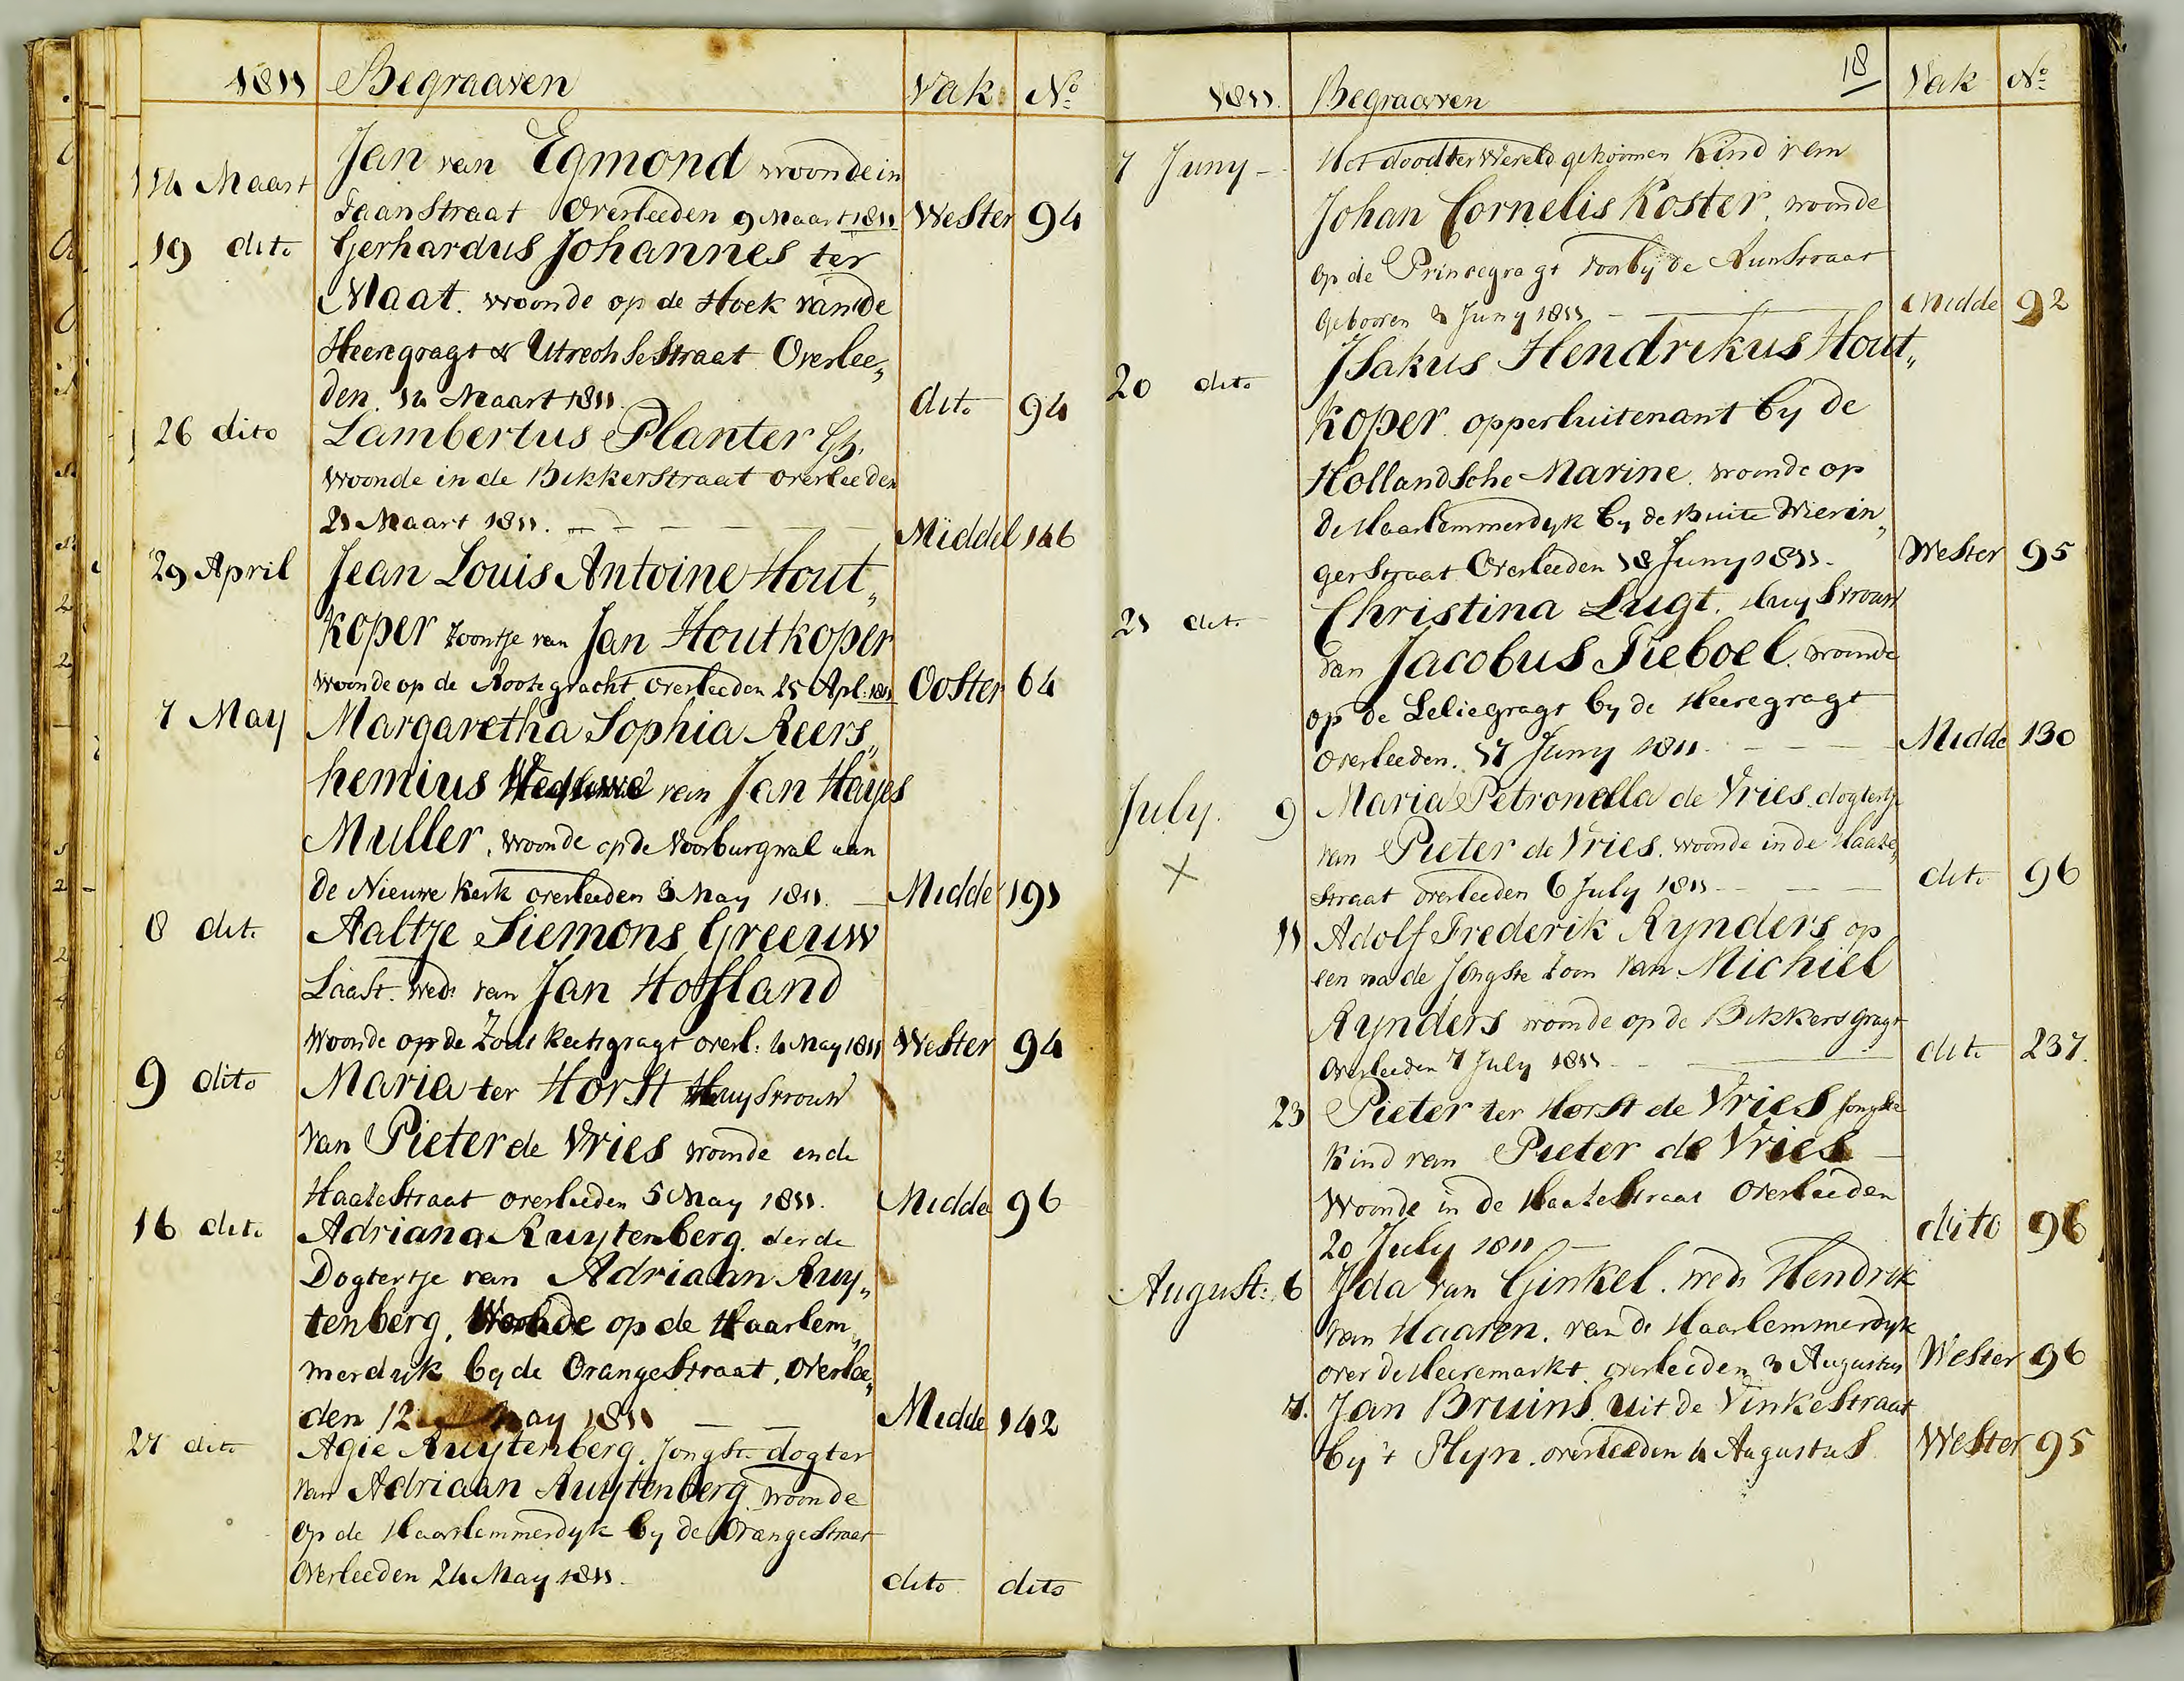 1811 Begraaven Vak N°
14 Maart Jan van Egmond woonde in
Taanstraat Overleeden 9 Maart 1811 Wester 94
19 dito Gerhardus Johannes ter
Maat. woonde op de Hoek van de
Heeregragt & Utrechsestraat Overlee„
den 14 Maart 1811. dito 94
26 dito Lambertus Planter
woonde in de Bikkerstraat overleeden
21 Maart 1811. Middel 146
29 April Jean Louis Antoine Hout„
koper zoontje van Jan Houtkoper
woonde op de Rootegracht overleeden 25 Apl: 1811 Ooster 64
7 May Margaretha Sophia Reers„
hemius Weduwe van Jan Hayes
Muller, woonde op de Voorburgwal aan
de Nieuwe Kerk overleeden 3 May 1811. Midde 191
8 dito Aaltje Siemons Greeuw
Laast. wed: van Jan Hoffland
woonde op de Zoutkeetsgragt overl: 4 May 1811 Wester 94
9 dito Maria ter Horst Huysvrouw
van Pieter de Vries woonde in de
Haazestraat overleeden 5 May 1811. Midde 96
16 dito Adriana Ruytenberg. derde
Dogtertje van Adriaan Ruy„
tenberg, Woonde op de Haarlem„
merdyk by de Orangestraat, overlee„
den 12 May 1811 Midde 142
27 dito Agie Ruytenberg. Jongste dogter
van Adriaan Ruytenberg woonde
op de Haarlemmerdyk by de Orangestraat
Overleeden 24 May 1811. dito dito
18
1811. Begraaven Vak N°
7 Juny Het dood ter Wereld gekoomen Kind van
Johan Cornelis Koster, woonde
op de Prinsegragt voorby de Runstraat
Gebooren Juny 1811 Midde 92
20 dito Isakus Hendrikus Hout„
koper. opperluitenant by de
Hollandsche Marine. woonde op
de Haarlemmerdyk by de Buite Wierin„
gerstraat Overleeden 18 Juny 1811. Wester 95
21 dito Christina Lugt. Huysvrouw
van Jacobus Tieboel. woonde
op de Leliegragt by de Heeregragt
overleeden. 17 Juny 1811. Midde 130
July. 9 Maria Petronella de Vries. dogtertje
van Pieter de Vries. woonde in de Haaze„
straat overleeden 6 July 1811 dito 96
11 Adolf Frederik Rynders op
een na de Jongste Zoon van Michiel
Rynders woonde op de Bikkersgragt
Overleeden 7 July 1811 dito 237.
23 Pieter ter Horst de Vries Jongste
Kind van Pieter de Vries
Woonde in de Haazestraat Overleeden
20 July 1811 dito 96
August: 6 Ida van Ginkel. wed: Hendrik
van Haaren. van de Haarlemmerdyk
over de Heeremarkt. overleeden Augustus Wester 96
7. Jan Bruins. uit de Vinkestraat
by 't Plyn. overleeden 4 Augustus Wester 95